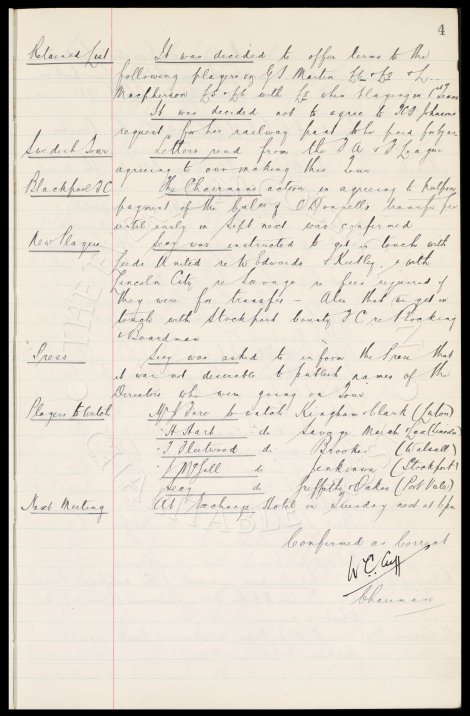 4
Retained List It was decided to offer terms to the
following players viz G S Martin
Macpherson £5 & £6 with £2 when playing in 1st Team
It was decided not to agree to Johnson's
request for his railway fares to be paid
Swedish Tour Letters read from the F A & F League
agreeing to our making this Tour
Blackpool FC The Chairman's action in agreeing to
payment of the balance of O'Donnells transfer fee
until early in Sept next was confirmed
New Players Secy was instructed to get in touch with
Leeds United re W Edwards & Keetley & with
Lincoln City re Savage re fees required if
they were for transfer - Also that we get in
touch with Stockport County FC re Bocking
& Boardman
Press Secy was asked to inform the Press that
it was not desirable to publish names of the
Directors who were going on Tour
Players to Watch Mr to watch Kingham Clark (Luton)
" H Hart do Savage March Cox (Lincoln)
" T Fleetwood do Brooks (Walsall)
" McGill do Jenkinson (Stockport)
Secy do Griffiths Oakes (Port Vale)
Next Meeting At Exchange Hotel on Tuesday next at 6pm
Confirmed as Correct
W C Cuff
Chairman